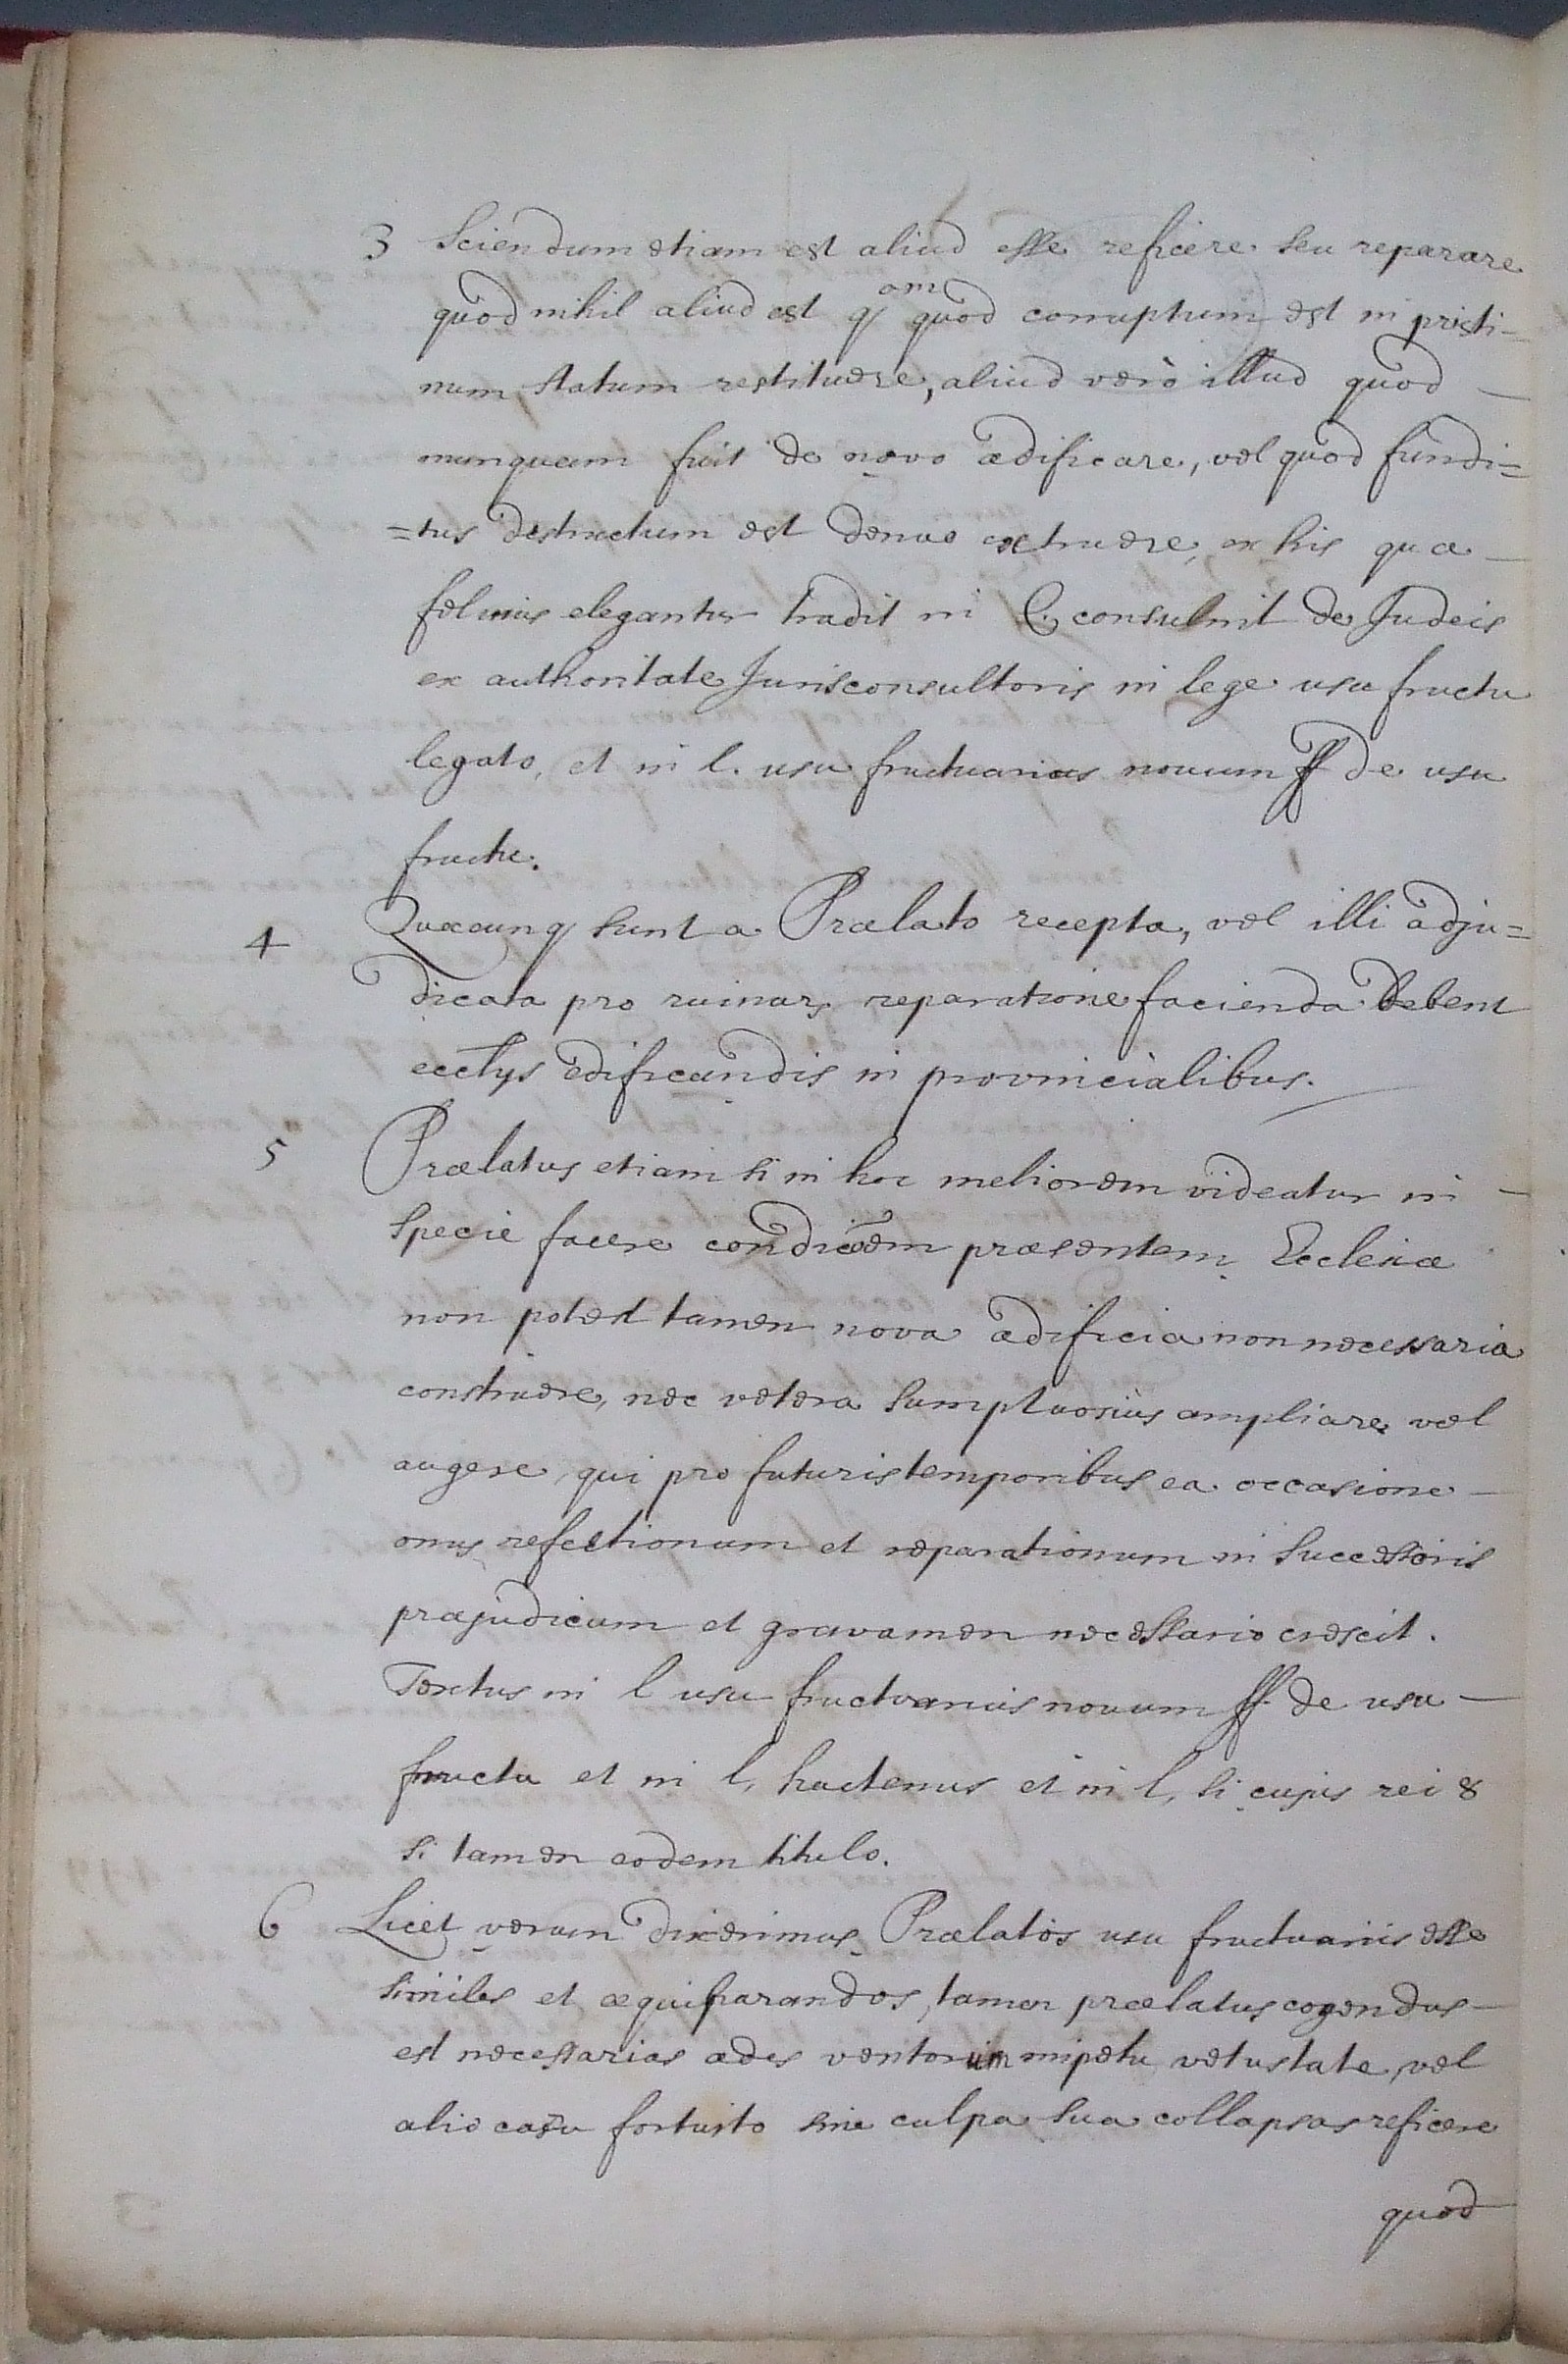 3 Sciendum etiam est aliud esse reficere seu reparare
quod nihil aliud est q̃ om quod corruptum est in pristi-
num statum restituere, aliud verò illud quod -
nunquam fuit de novo ædificare, vel quod fundi=
=tus destructum est denuo extruere, ex his quæ -
felinus eleganter tradit in C. consuluit de Judeis
ex authoritate Jurisconsultoris in lege usu fructu
legato, et in l. usu fructuarius nouum ff de usu
fructu.
4 Quæcunq sunt a Prælato recepta, vel illi adju=
dicata pro ruinar, reparatione facienda debent
ecclijs edificandis in provincialibus.
5 Prælatus etiam si in hoc meliorem videatur in -
specie facere condicõem præsentem Ecclesiæ
non potest tamen nova ædificia non necessaria
construere, nec vetera sumptuosiùs ampliare vel
augere qui pro futuris temporibus ea occasione -
onus refectionum et reparationum in successoris
præjudicium et gravamen necessario crescit.
Textus in l usu fructuarius nouum ff. de usu -
fructu et in l, hactenus et in l, si cujus rei §
si tamen eodem titulo.
6 Licet verum dixerimus Prælatos usu fructuariis esse
similes et æquiparandos, tamen prælatus cogendus -
est necessarias ædes ventorum impetu vetustate, vel
alio casu fortuito sine culpa sua collapsas reficere
quod